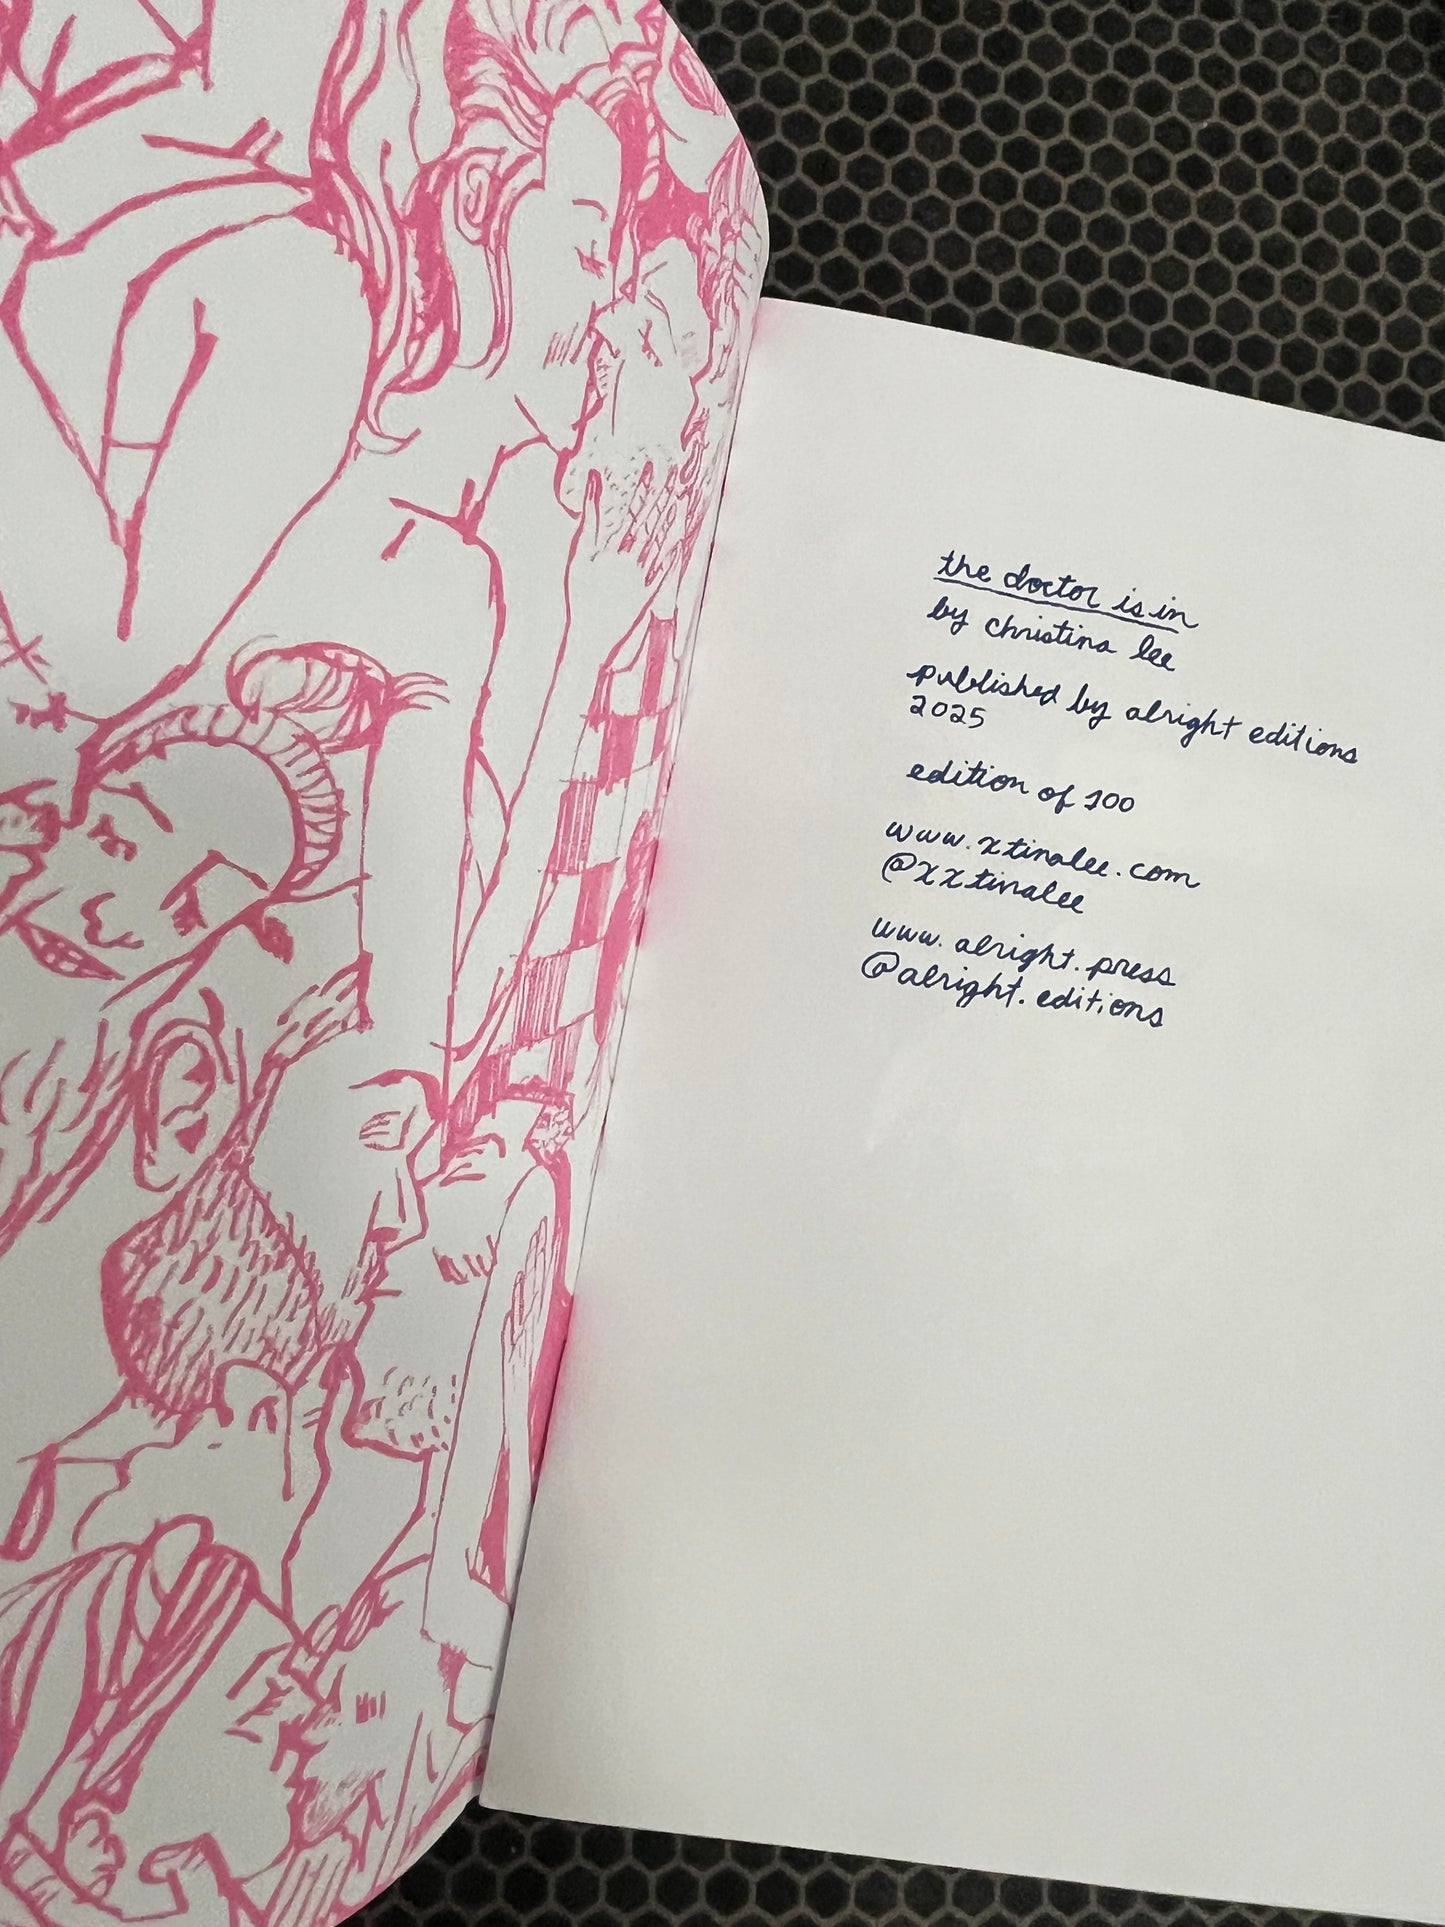 the doctor is in
by christina lee
published by alright editions
2025
edition of 100
www.xtinalee.com
@xxtinalee
www.alright.press
@alright.editions